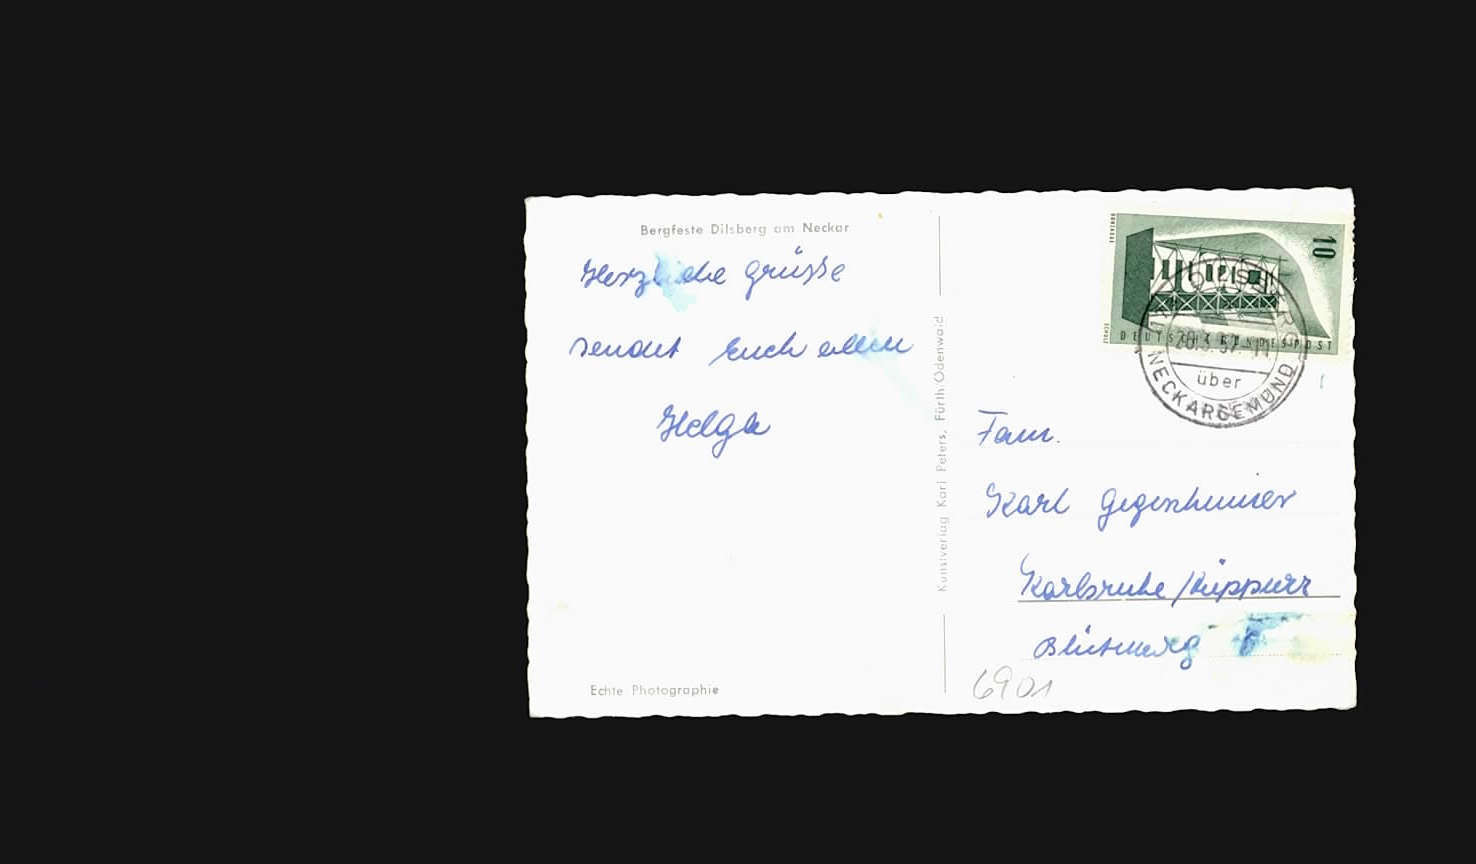 Bergfeste Dilsberg am Neckar
Herzliche Grüsse
sendet Euch allen
Helga
Echte Photographie
Kunstverlag Karl Peters, Fürth/Odenwald
10
EUROPA
DEUTSCHE BUNDESPOST
DILSBERG
57
über
NECKARGEMÜND
Fam.
Karl
Karlsruhe/Rüppurr
Blütenweg
6901